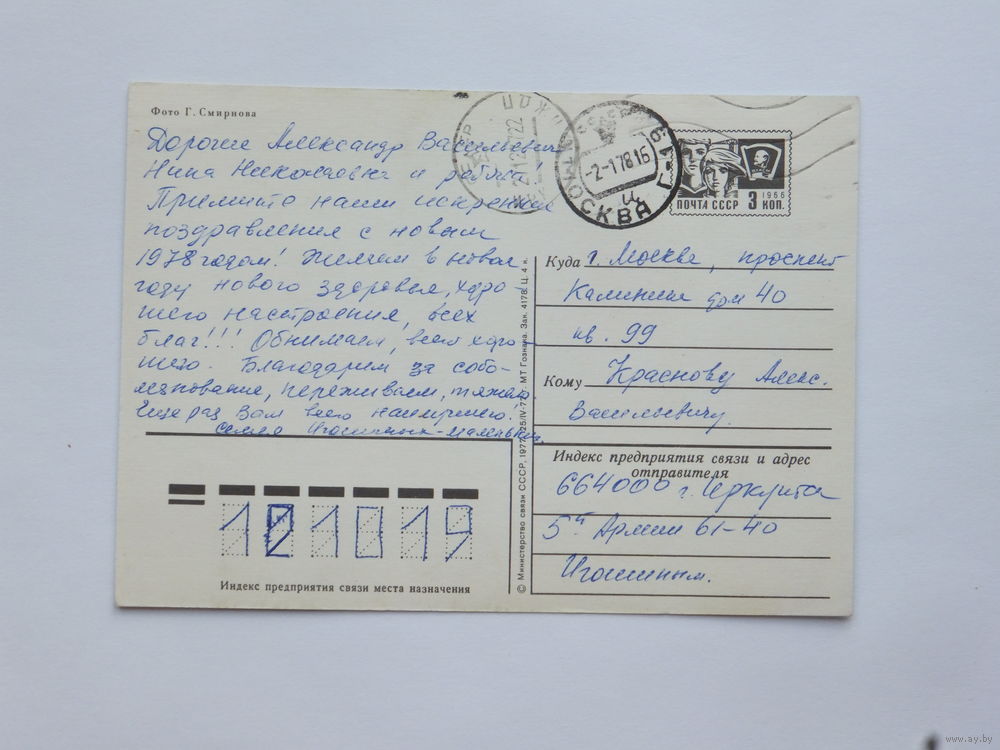 Фото Г. Смирнова
Дорогие Александр Васильевич
Нина Николаевна и ребята
Примите наши искренние
поздравления с новым
1978 годом! Желаем в новом
году нового здоровья, хоро-
шего настроения, всех
благ!!! Обнимаем, всего хоро-
шего. Благодарим за собо-
лезнование, переживаем, тяжело.
Еще раз Вам всего наилучшего!
семья
Индекс предприятия связи места назначения
101019
© Министерство связи СССР, 1977. МТ Гознака. Зак. 4178. Ц. 4 к.
МОСКВА
-2-1 78 16
ПОЧТА СССР 3 КОП.
1966
Куда г. Москва, проспект
Калинина дом 40
кв. 99
Кому Краснову Алекс.
Васильевичу
Индекс предприятия связи и адрес
отправителя
664000 г.
5й Армии 61-40
Игошиным.
www.ay.by